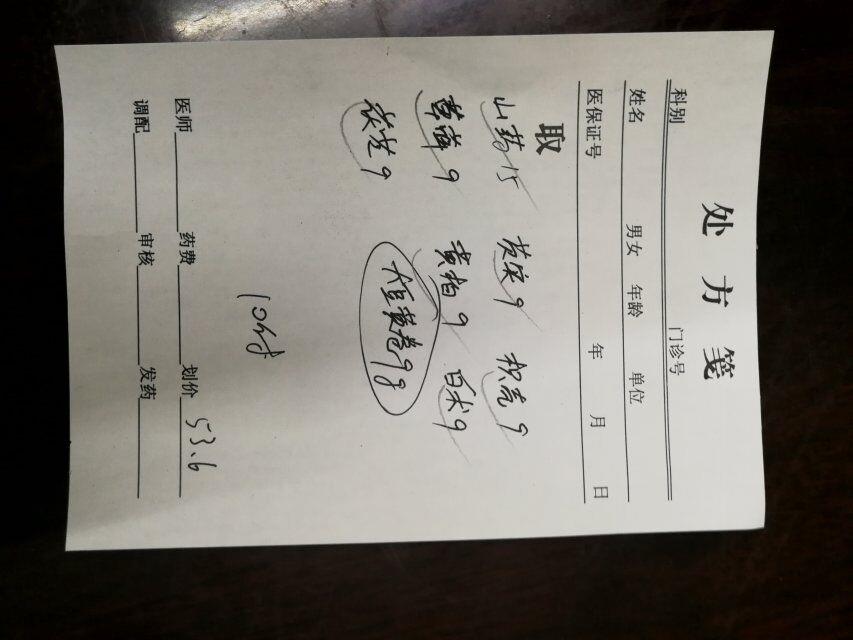 处方笺
科别 门诊号
姓名 男女 年龄 单位
医保证号 年 月 日
取
山药15 芡实9 枳壳9
萆薢9 黄柏9 白术9
茯苓9 大豆黄卷9g
10付
医师 药费 划价 53.6
调配 审核 发药